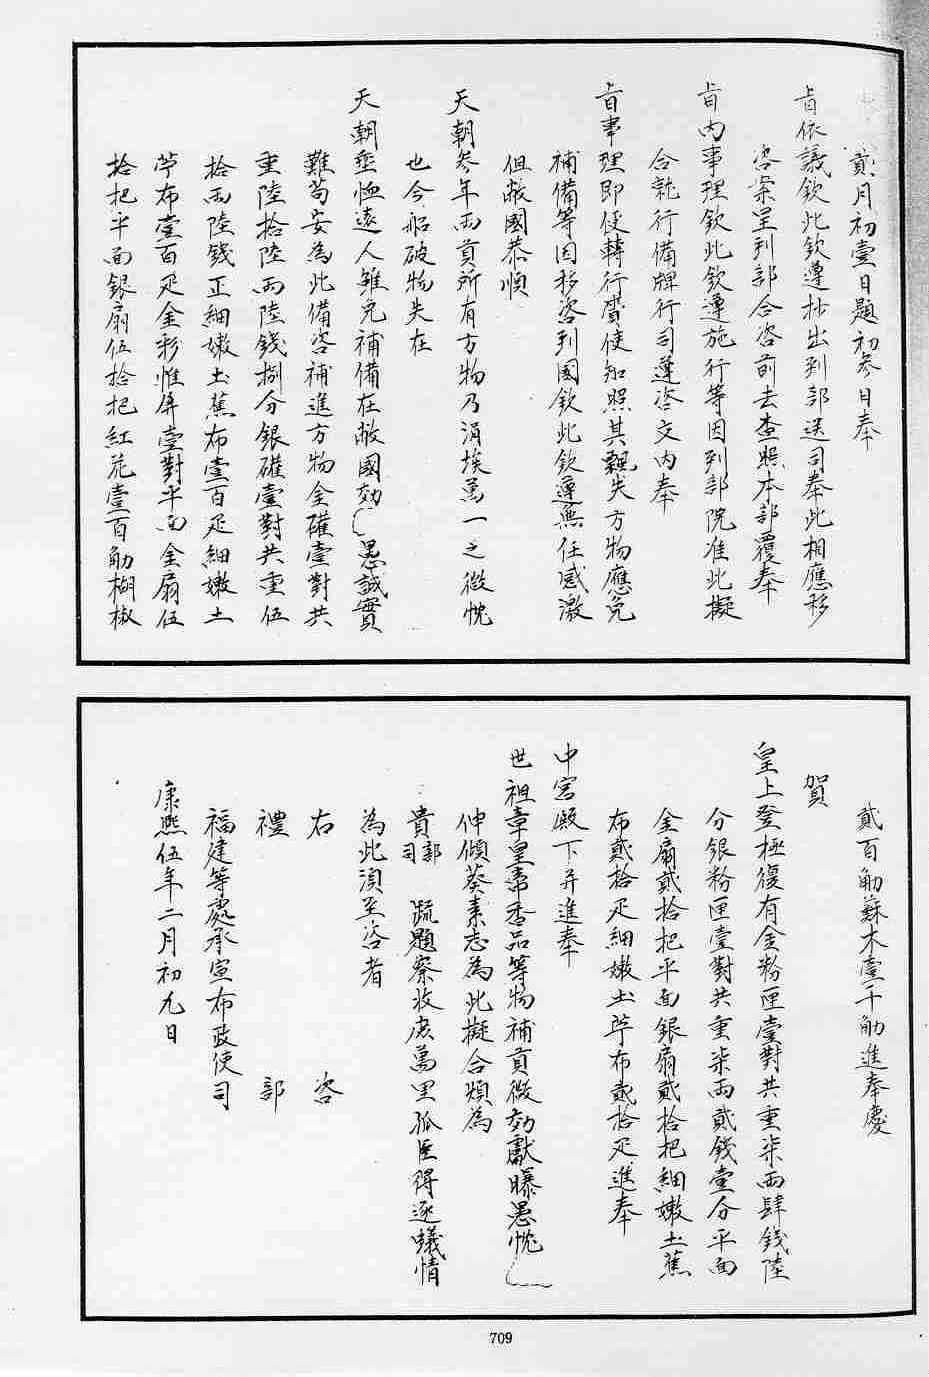 貳月初壹日題初參日奉
旨依議欽此欽遵抄出到部送司奉此相應移
咨案呈到部合咨前去查照本部覆奉
旨內事理欽此欽遵施行等因到部院准此擬
合就行備牌行司遵咨文內奉
旨事理即便轉行賫使知照其飄失方物應免
補備等因移咨到國欽此欽遵無任感激
但敝國恭順
天朝參年兩貢所有方物乃涓埃萬一之微忱
也今船破物失在
天朝垂恤遠人雖免補備在敝國効愚誠實
難苟安為此備咨補進方物金礶壹對共
重陸拾陸兩陸錢捌分銀礶壹對共重伍
拾兩陸錢正細嫩土蕉布壹百疋細嫩土
苧布壹百疋金彩惟屏壹對平面金扇伍
拾把平面銀扇伍拾把紅花壹百觔楜椒
貳百觔蘇木壹千觔進奉慶
賀
皇上登極復有金粉匣壹對共重柒兩肆錢陸
分銀粉匣壹對共重柒兩貳錢壹分平面
金扇貳拾把平面銀扇貳拾把細嫩土蕉
布貳拾疋細嫩土苧布貳拾疋進奉
中宮殿下并進奉
世祖章皇帝香品等物補貢微効獻曝愚忱
伸傾葵素志為此擬合煩為
貴部司 疏題察收庶萬里孤臣得逐蟻情
為此湏至咨者
右 咨
禮 部
福建等處承宣布政使司
康熙伍年二月初九日
709